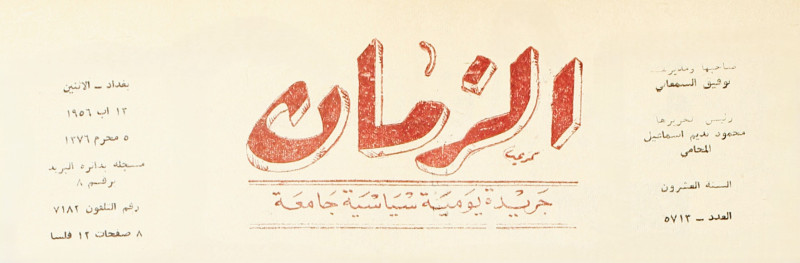 صاحبها ومديرها
توفيق السمعاني
رئيس تحريرها
محمود نديم اسماعيل
المحامي
السنه العشرون
العدد – ٥٧١٣
الزمان
جريدة يومية سياسية جامعة
بغداد – الاثنين
١٣ اب ١٩٥٦
٥ محرم ١٣٧٦
مسجله بدائره البريد
برقم ٨
رقم التلفون ٧١٨٢
٨ صفحات ١٢ فلسا